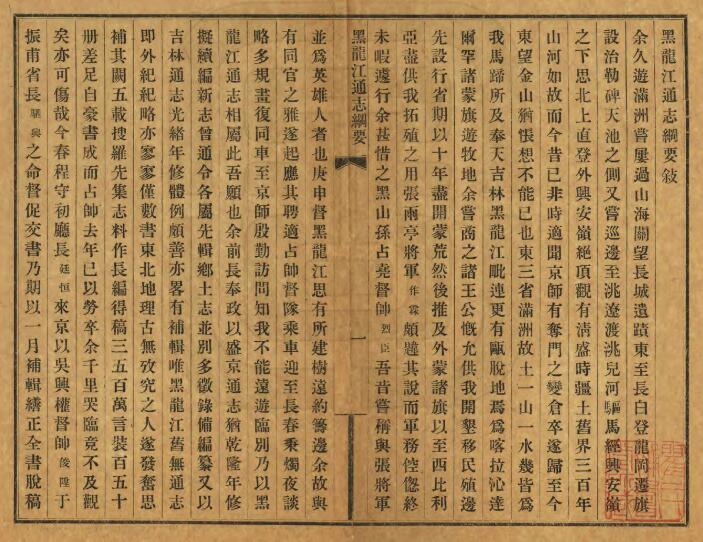 黑龍江通志綱要敍
余久遊滿洲嘗屢過山海關望長城遺蹟東至長白登龍岡遷旗
設治勒碑天池之側又嘗巡邊至洮遼渡洮兒河驅馬經興安嶺
之下思北上直登外興安嶺絕頂觀有淸盛時疆土舊界三百年
山河如故而今昔已非時適聞京師有奪門之變倉卒遂歸至今
東望金山猶悵想不能已也東三省滿洲故土一山一水幾皆爲
我馬蹄所及奉天吉林黑龍江毗連更有甌脫地焉爲喀拉沁達
爾罕諸蒙旗遊牧地余嘗商之諸王公慨允供我開墾移民殖邊
先設行省期以十年盡開蒙荒然後推及外蒙諸旗以至西比利
亞盡供我拓殖之用張雨亭將軍作霖頗韙其說而軍務倥傯終
未暇遑行余甚惜之黑山孫占堯督帥烈臣吾昔嘗稱與張將軍
黑龍江通志綱要
一
並爲英雄人者也庚申督黑龍江思有所建樹遠約籌邊余故與
有同官之雅遂起應其聘適占帥督隊乘車迎至長春秉燭夜談
略多規畫復同車至京師殷勤訪問知我不能遠遊臨別乃以黑
龍江通志相屬此吾願也余前長奉政以盛京通志猶乾隆年修
擬續編新志曾通令各屬先輯鄉土志並別多徵錄備編纂又以
吉林通志光緒年修體例頗善亦畧有補輯唯黑龍江舊無通志
即外紀紀略亦寥寥僅數書東北地理古無攷究之人遂發奮思
補其闕五載搜羅先集志料作長編得稿三五百萬言裝百五十
册差足自豪書成而占帥去年已以勞卒余千里哭臨竟不及觀
矣亦可傷哉今春程守初廳長廷恒來京以吳興權督帥俊陞于
振甫省長駟興之命督促交書乃期以一月補輯繕正全書脫稿